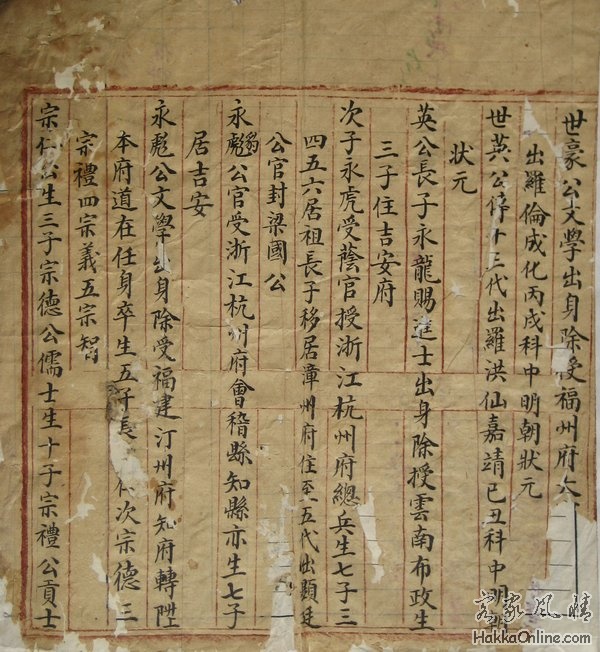 世豪公文學出身除受福州府
出羅倫成化丙戌科中明朝狀元
世英公傳十三代出羅洪仙嘉靖已丑科中明朝
狀元
英公長子永龍賜進士出身除授雲南布政生
三子住吉安府
次子永虎受蔭官授浙江杭州府總兵生七子三
四五六居祖長子移居漳州府住至五代出顯廷
公官封梁國公
永彪公官受浙江杭州府會稽縣知縣亦生七子
豹
居吉安
永彪公文學出身除受福建汀州府知府轉陞
本府道在任身卒生五子長仁次宗德三
宗禮四宗義五宗智
宗仁公生三子宗德公儒士生十子宗禮公貢士
客家風情
HakkaOnline.com